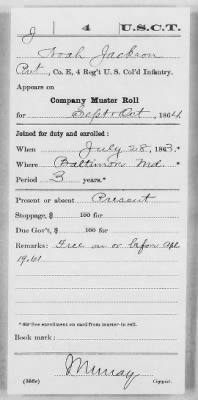 J | 4 | U.S.C.T.
Noah Jackson
Pvt, Co. E, 4 Reg't U. S. Col'd Infantry.
Appears on
Company Muster Roll
for Sept & Oct, 1864.
Joined for duty and enrolled:
When July 28, 1863.*
Where Baltimore Md.*
Period 3 years.*
Present or absent Present
Stoppage, $ 100 for
Due Gov't, $ 100 for
Remarks: Free on or before Apl
19.61
* See enrollment on card from muster-in roll.
Book mark:
Murray
(358c) Copyist.